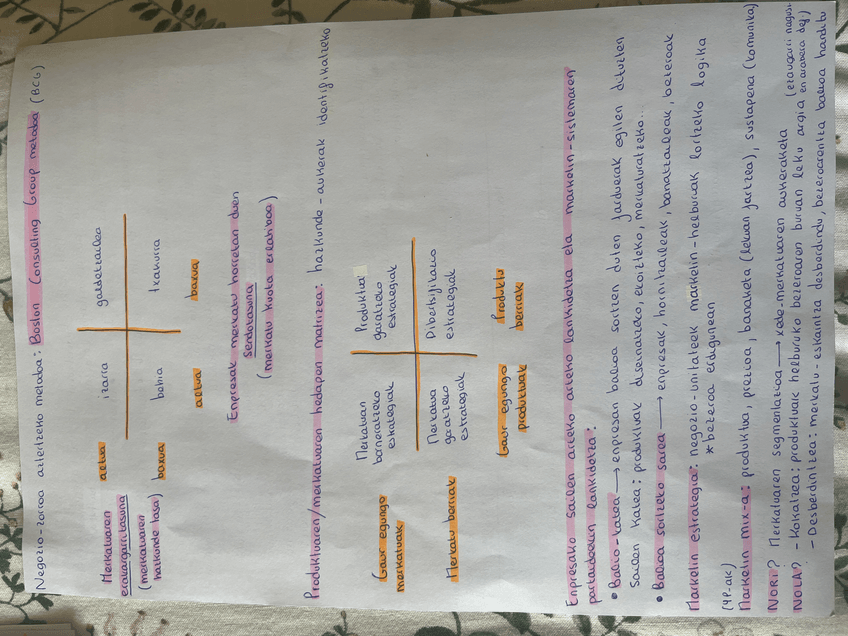 Negozio-zorroa aztertzeko metodoa: Boston Consulting Group metodoa (BCG)
altua izarra galdetzailea
Merkatuaren
erakargarritasuna
(merkatuaren
hazkunde tasa)
baxua behia txakurra
altua baxua
Enpresak merkatu horretan duen
sendotasuna
(merkatu kuota erlatiboa)
Produktuaren/merkatuaren hedapen matrizea: hazkunde-aukerak identifikatzeko
Gaur egungo
merkatuak
Merkatuan
barneratzeko
estrategiak
Produktua
garatzeko
estrategiak
Merkatu berriak
Merkatua
garatzeko
estrategiak
Dibertsifikazio
estrategiak
Gaur egungo
produktuak
Produktu
berriak
Enpresako sailen arteko lankidetza eta marketin-sistemaren
partaideekin lankidetza:
• Balio-katea → enpresan balioa sortzen duten jarduerak egiten dituzten
sailen katea; produktuak diseinatzeko, ekoizteko, merkaturatzeko...
• Balioa sortzeko sarea → enpresak, hornitzaileak, banatzaileak, bezeroak
Marketin estrategia: negozio-unitateek marketin-helburuak lortzeko logika
* bezeroa erdigunean
(4P-ak)
Marketin mix-a: produktua, prezioa, banaketa (lekuan jartzea), sustapena (komunika)
NORI? Merkatuaren segmentazioa → xede-merkatuaren aukeraketa
NOLA? - Kokatzea: produktuak helburuko bezeroaren buruan leku argia (ezaugarri nagusi
en arabera def)
- Desberdintzea: merkatu-eskaintza desberdindu, bezeroarentzat balioa handitu